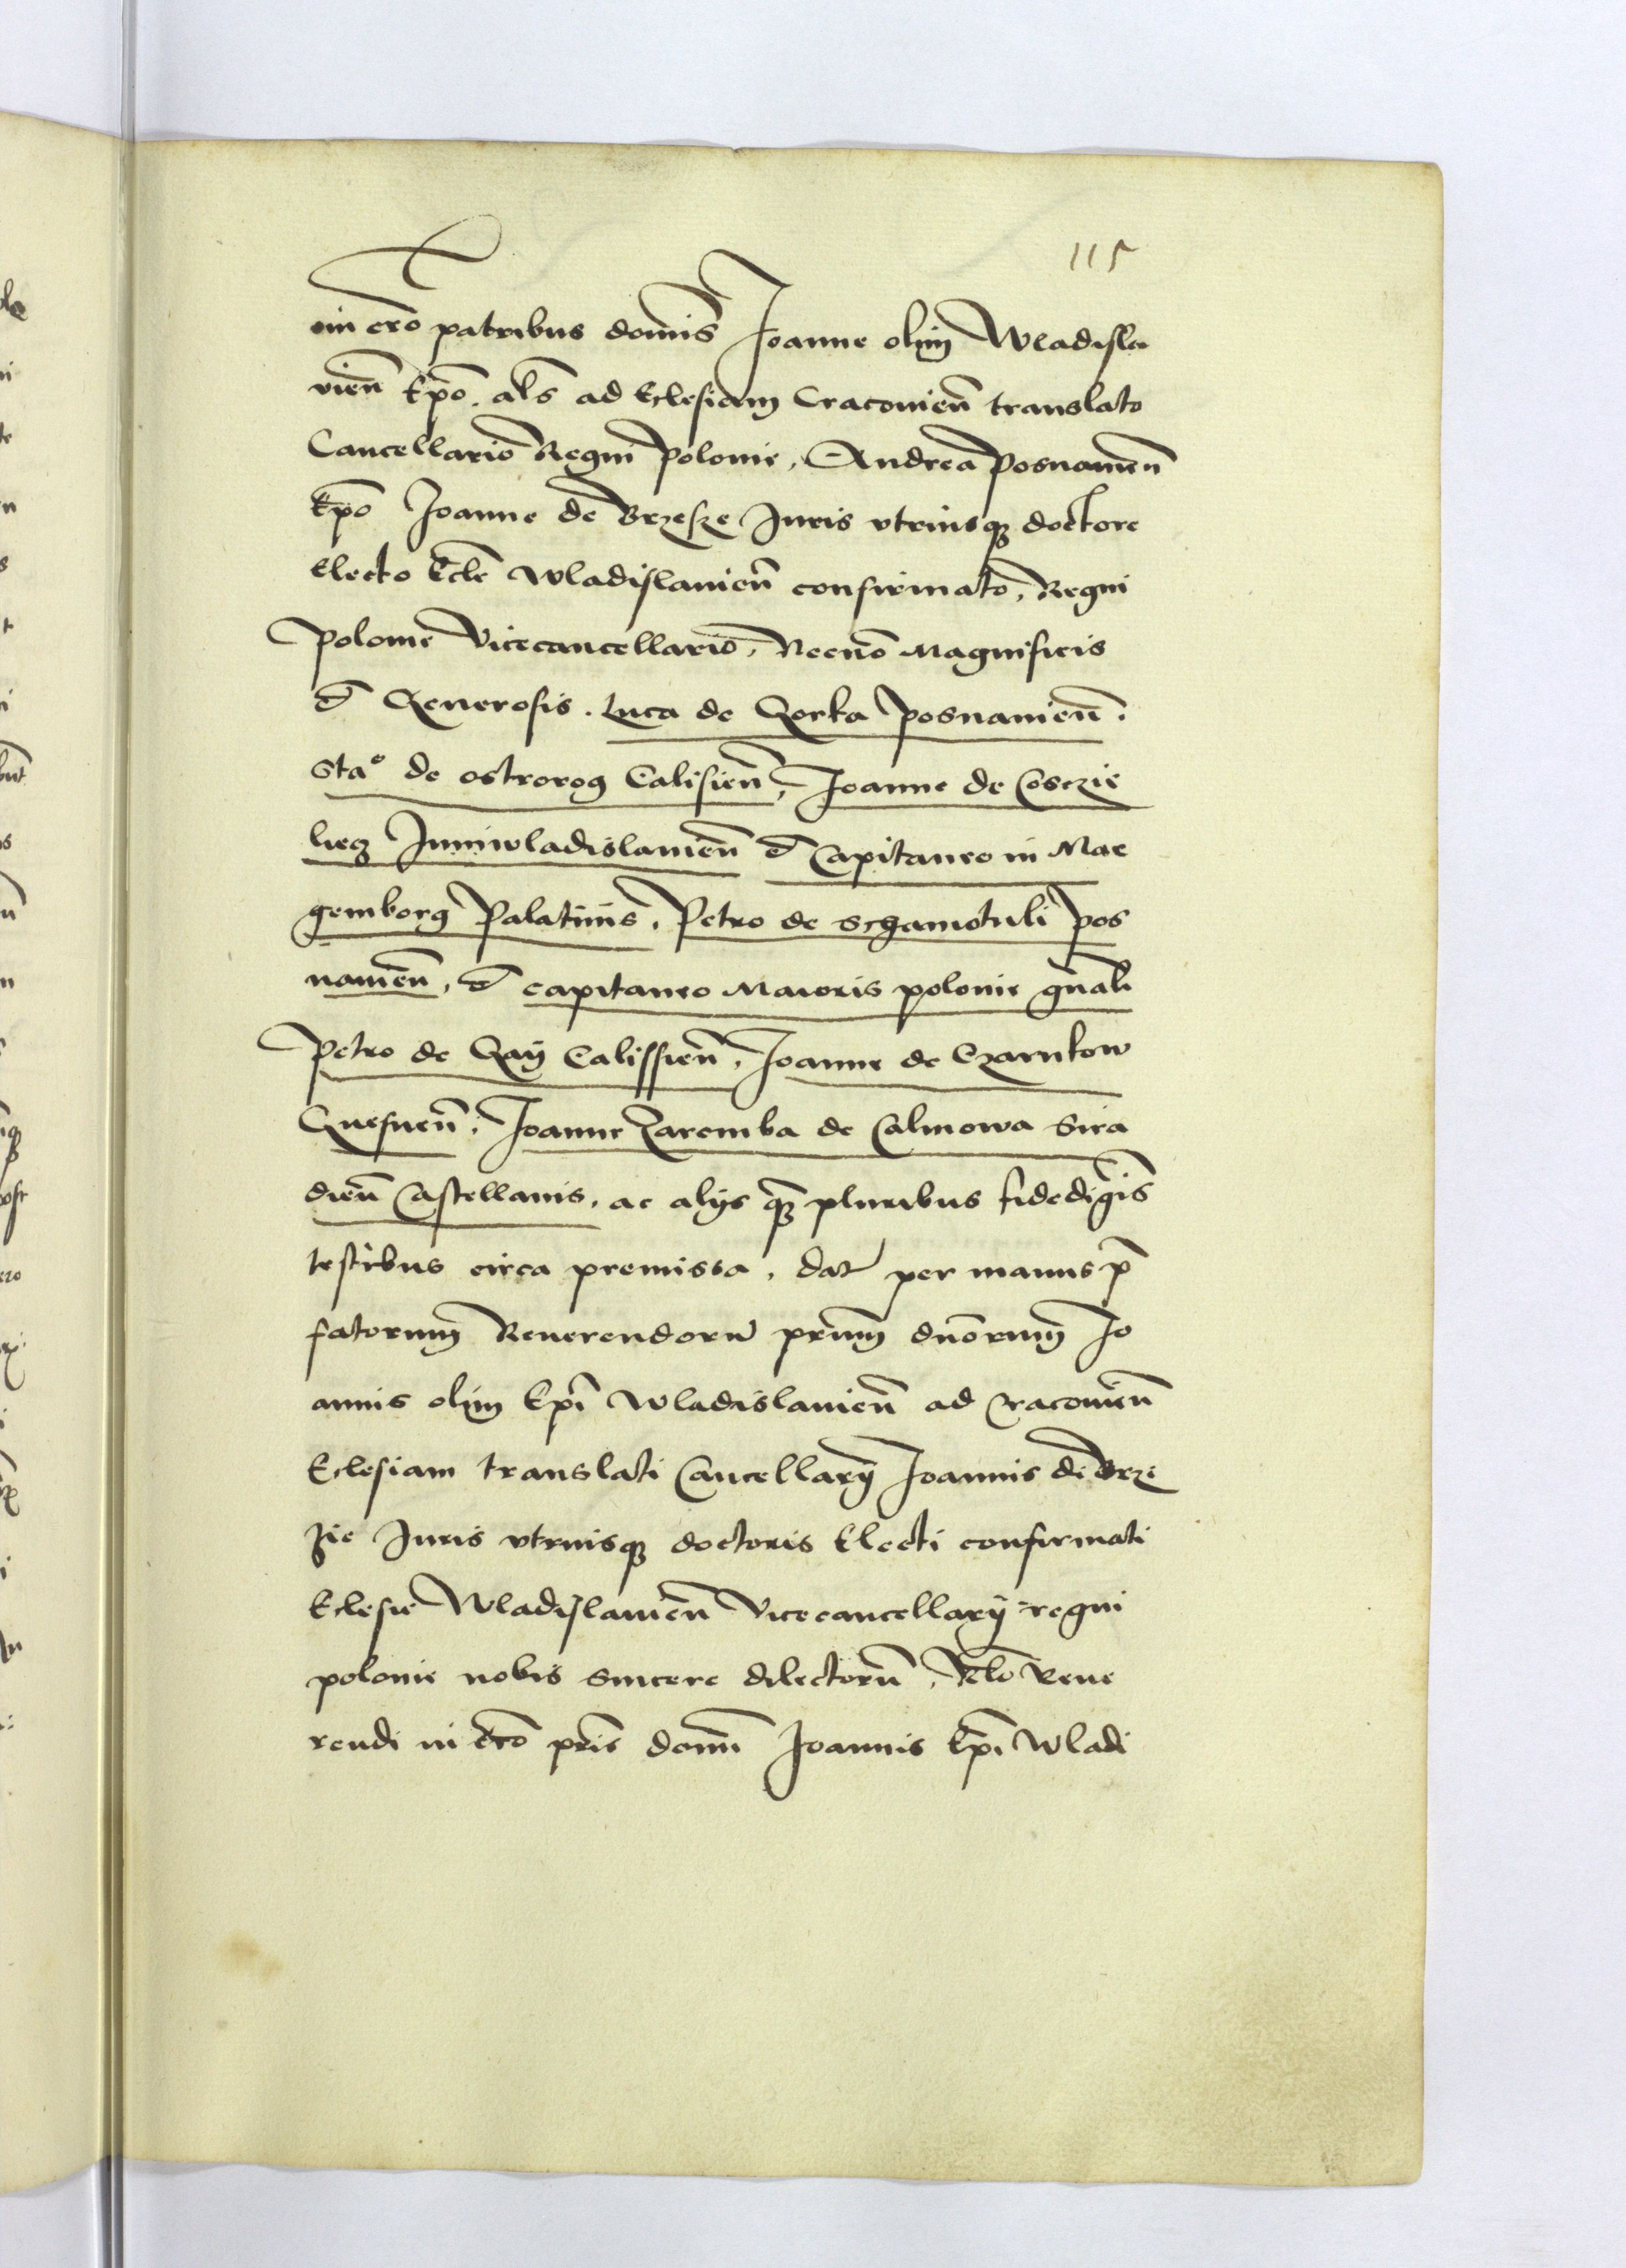 115
in cro patribus domīs Joanne olim Wladisla
vieñ Epō. als ad Eclesiam Cracovieñ translato
Cancellario Regni Polonie, Andrea Posnanieñ
Epō Joanne de Brzesze Juris vtriusq doctore
Electo Ecle Wladislavieñ confirmato, Regni
Polonie Vicecancellario, Necnō Magnificis
et Generosis. Luca de Gorka Posnanieñ.
Sta° de ostrorog Calisieñ, Joanne de Cosczie
lecz Juniwladislavieñ et Capitaneo in Mar
gemborg Palatinis. Petro de Schamotuli Pos
nanieñ, et capitaneo Maioris polonie gnāli
Petro de Gay Calissieñ. Joanne de Czarnkow
Gnesneñ. Joanne Zaremba de Calinowa Sira
dieñ Castellanis. ac alijs qz pluribus fidedignis
testibus circa premissa. dat per manus p̄
fatorum Reuerendorū prum dnōrum Jo
annis olim Epi Wladislavieñ ad Cracovieñ
Eclesiam translati Cancellarij Joannis de Brze
zie Juris vtriusq doctoris Electi confirmati
Eclesie Wladislavieñ Vicecancellarij regni
polonie nobis sincere dilectorū, Relō Reue
rendi in cro pris domī Joannis Epi Wladi